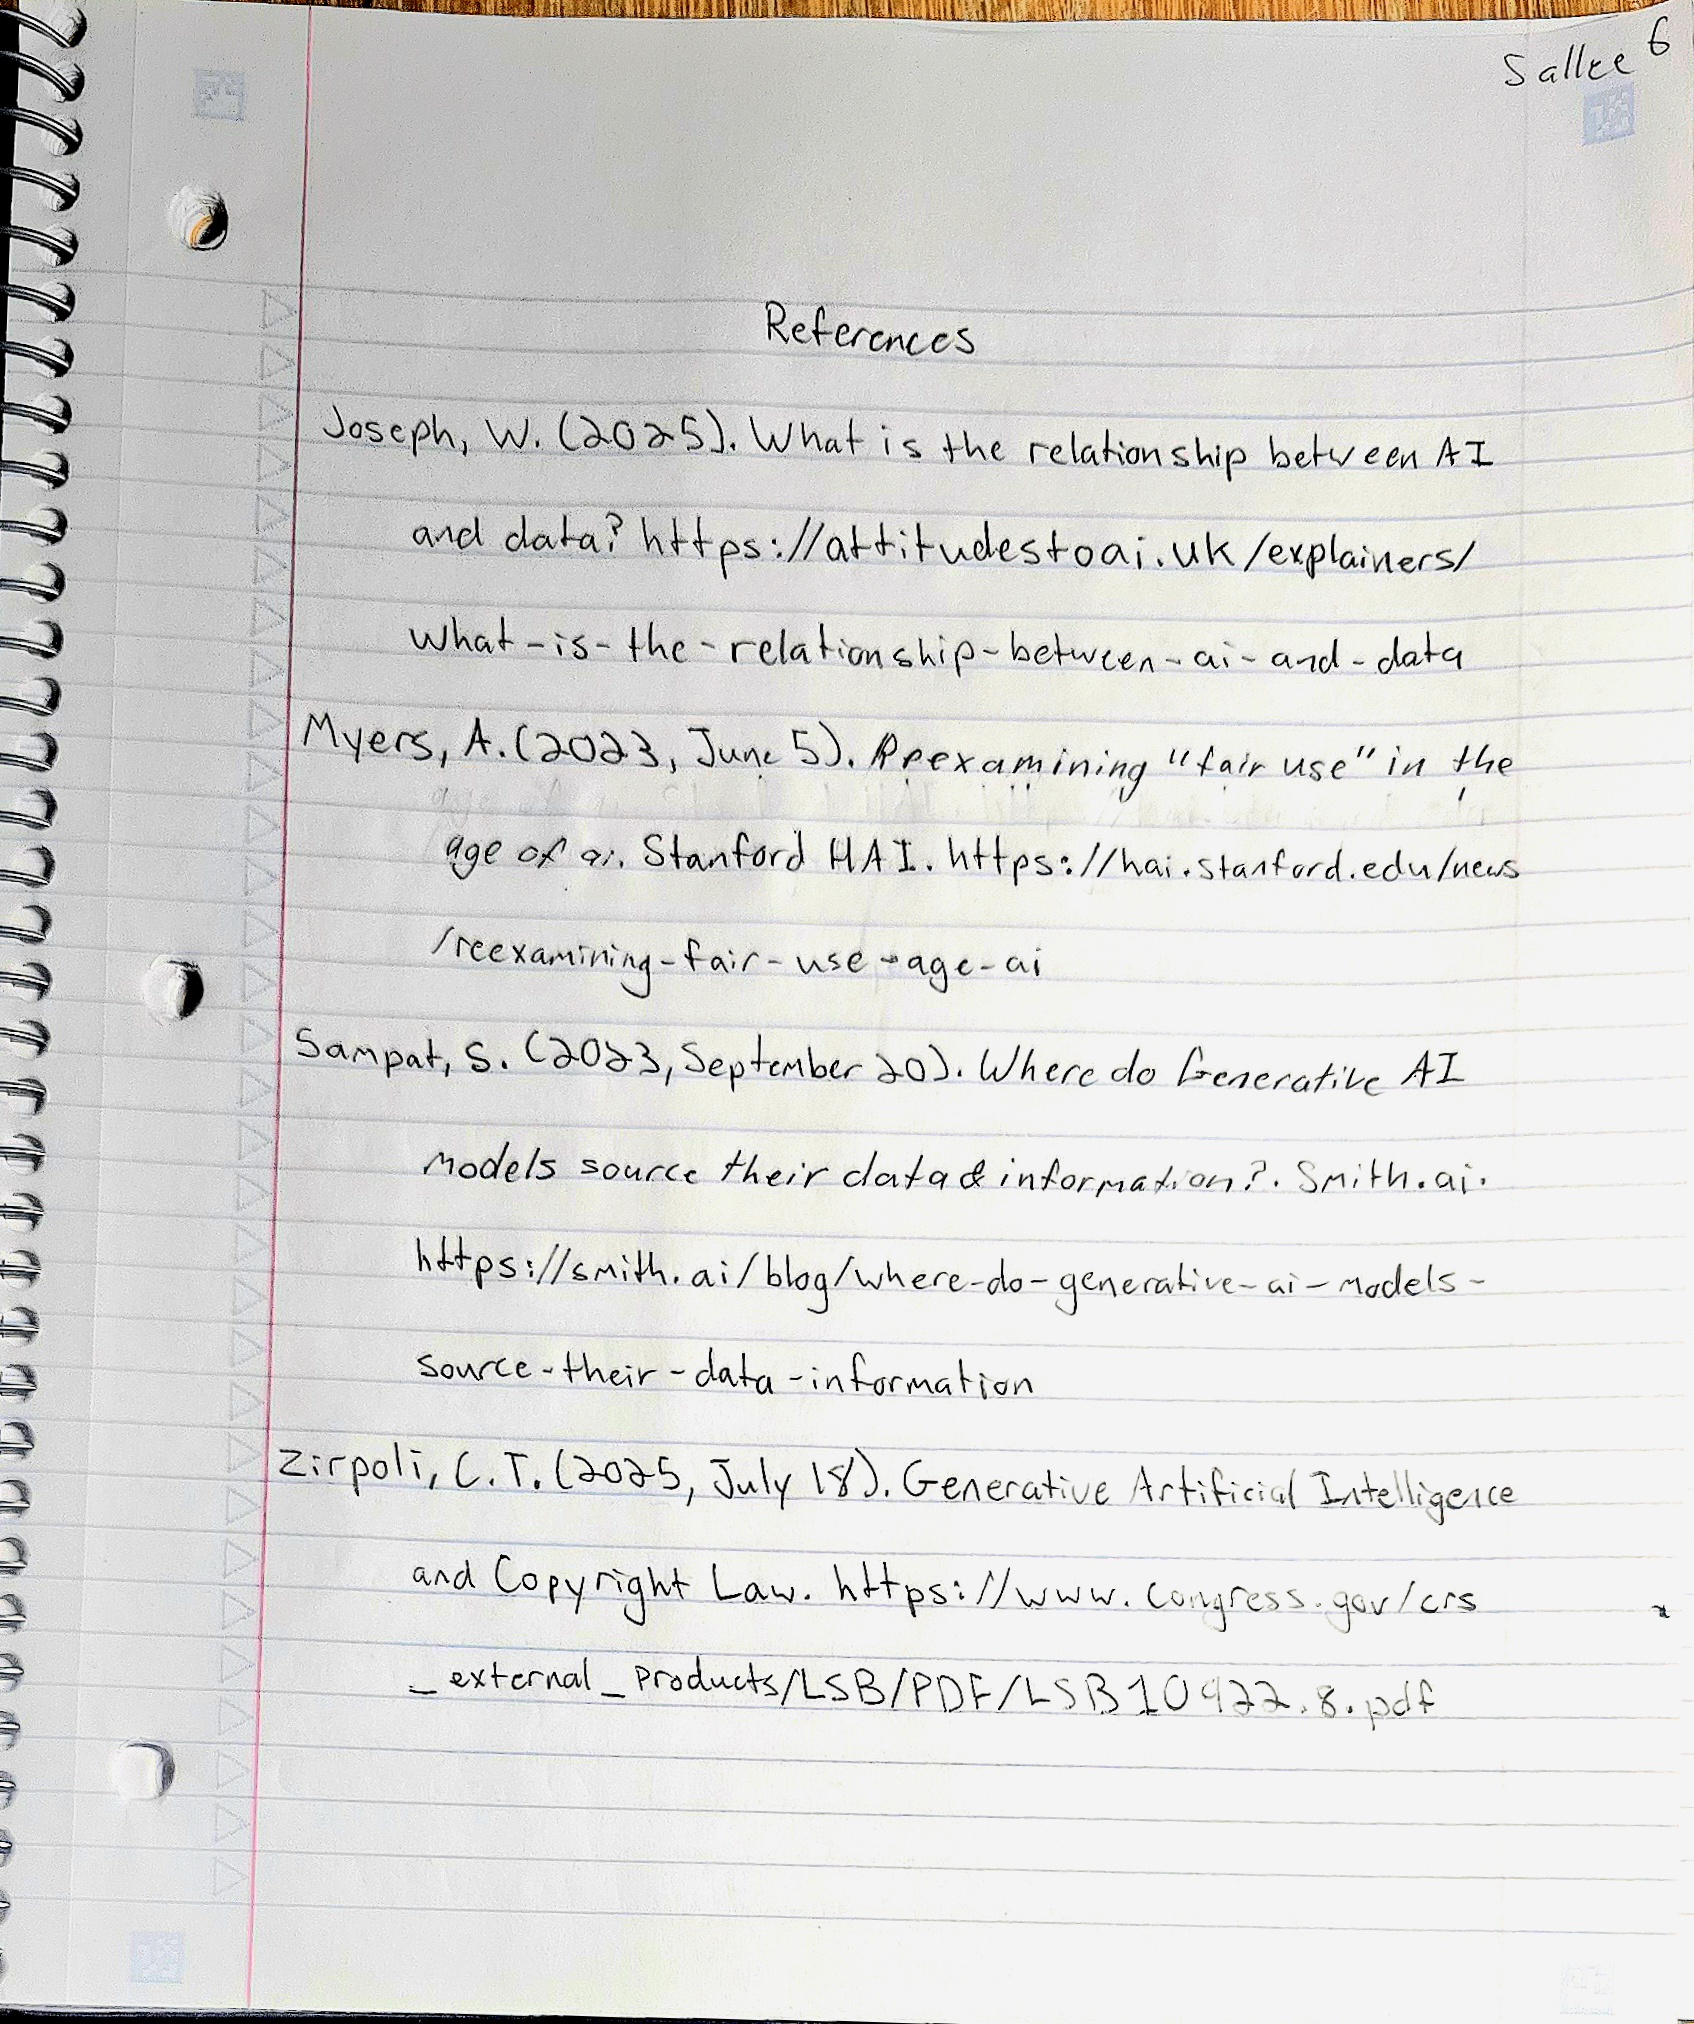 Sallee 6
References
Joseph, W. (2025). What is the relationship between AI
and data? https://attitudestoai.uk/explainers/
what-is-the-relationship-between-ai-and-data
Myers, A. (2023, June 5). Reexamining "fair use" in the
age of ai. Stanford HAI. https://hai.stanford.edu/news
/reexamining-fair-use-age-ai
Sampat, S. (2023, September 20). Where do Generative AI
models source their data & information?. Smith.ai.
https://smith.ai/blog/where-do-generative-ai-models-
source-their-data-information
Zirpoli, C. T. (2025, July 18). Generative Artificial Intelligence
and Copyright Law. https://www.congress.gov/crs
_external_products/LSB/PDF/LSB10922.8.pdf